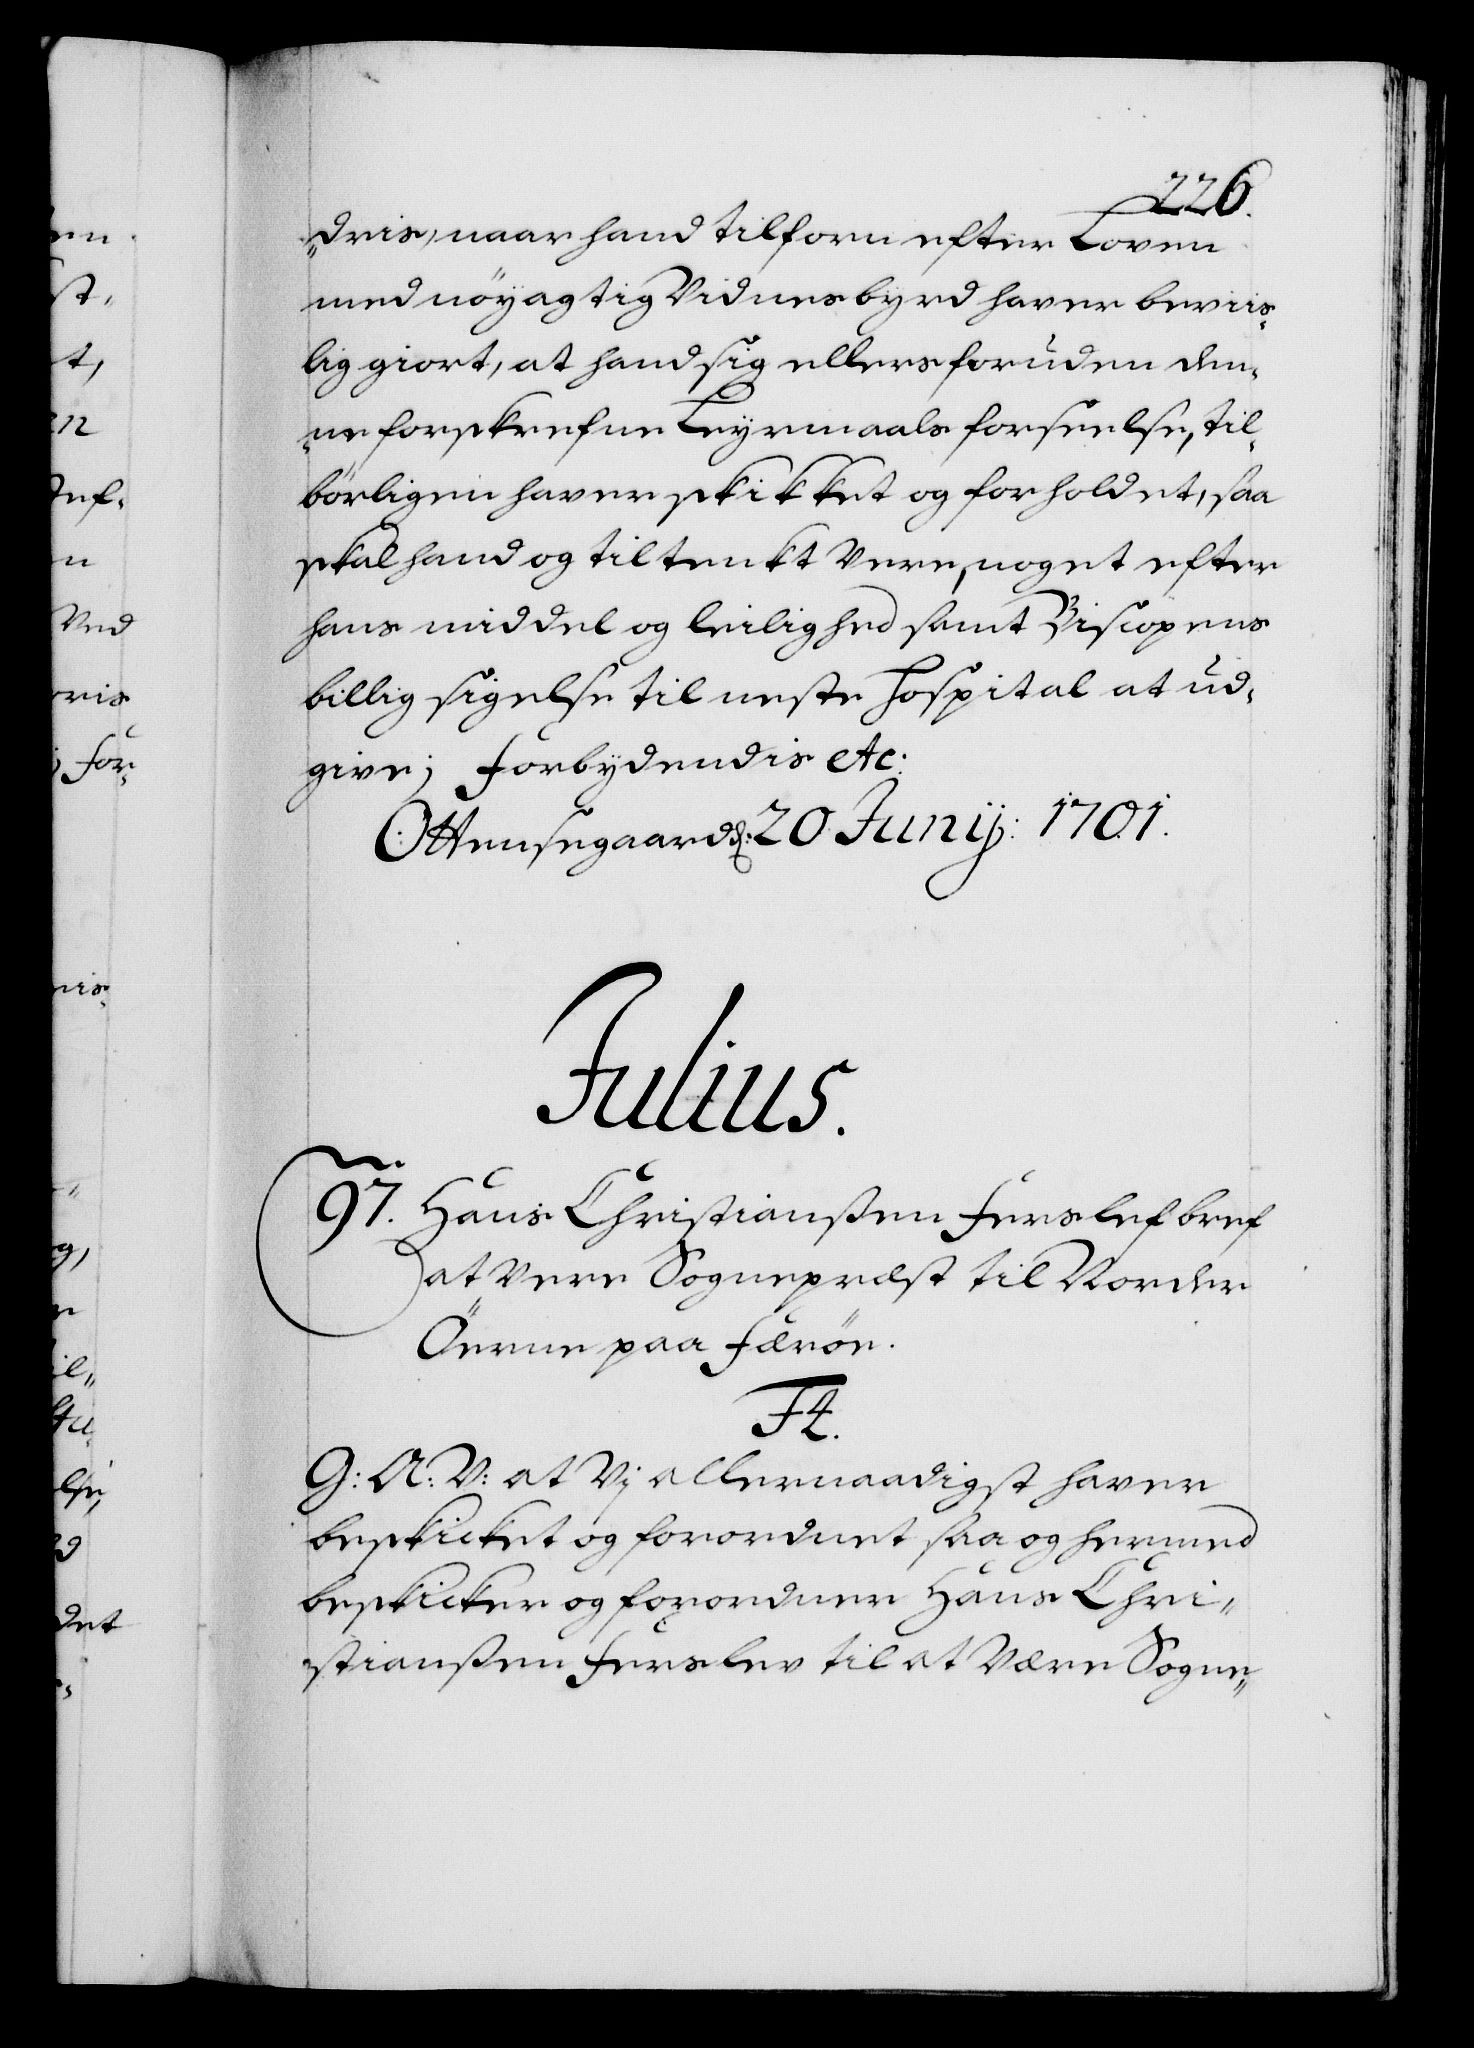 226.
„dris, naar hand tilforn efter Loven
med nöyagtig Vidnesbyrd haver beviis-
lig giort, at hand sig ellers foruden den-
„ne forskrefne Leyrmaals forseelse, til-
börligen haver skikket og forholdet, saa
skal hand og tiltenkt vere, noget efter
hans middel og leilighed samt Biscopens
billig sigelse til neste Hospital at ud-
give; Forbydendis etc:
Ottensegaard d: 20 Junij: 1701.
Julius.
97. Hans Christianßen Ferslef bref
at vere Sognepræst til Norder
Öerne paa Færöe.
F4.
G: A: V: at Vj allernaadigst haver
beskicket og forordnet saa og hermed
beskicker og forordner Hans Chri„
stianßen Ferslev til at være Sogne„